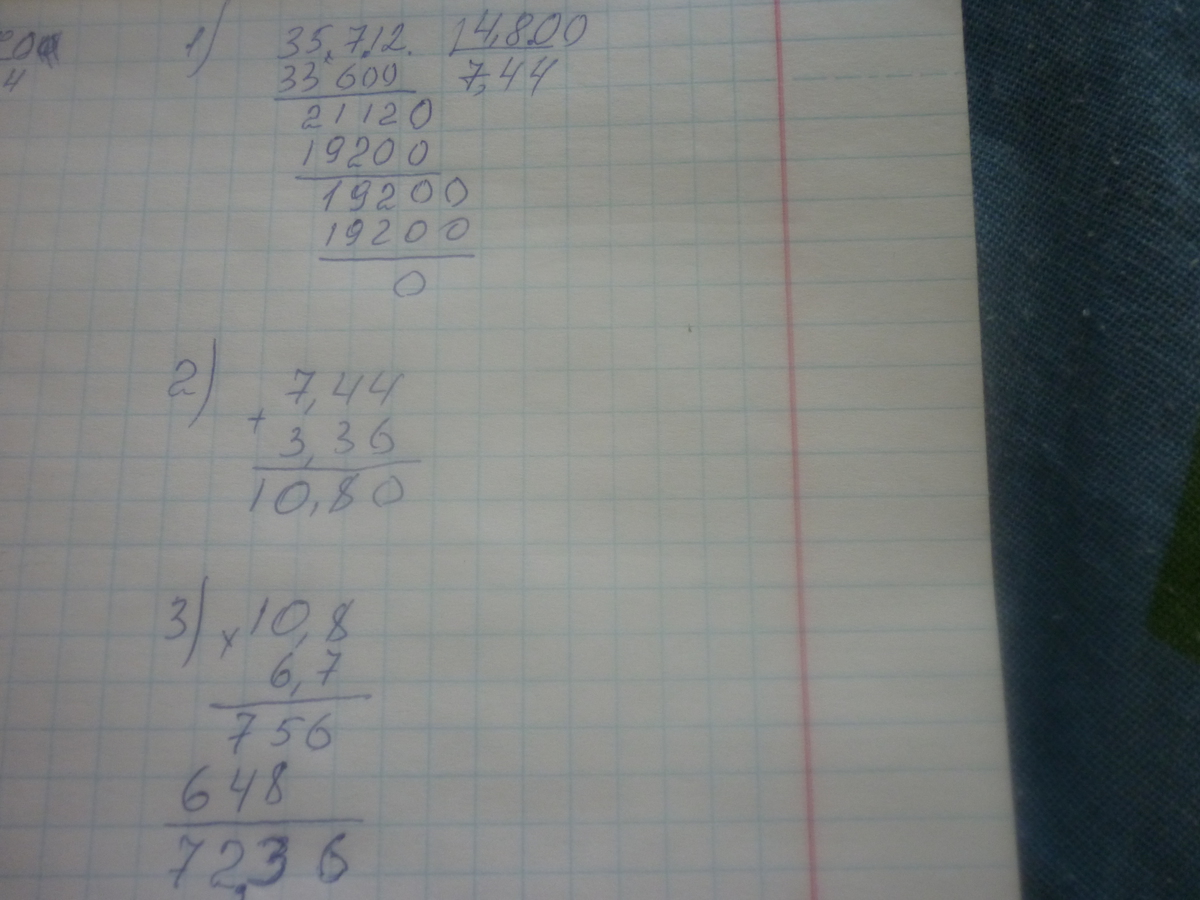 1) 35,712 4,800
33 600 7,44
21120
19200
19200
19200
0
2) 7,44
+ 3,36
10,80
3) x 10,8
6,7
756
648
72,36